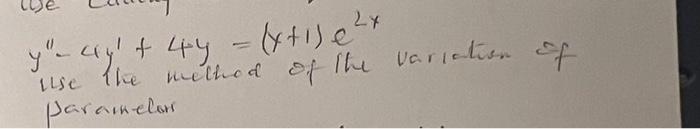 use
y'' - 4y' + 4y = (x+1) e^{2x}
use the method of the variation of
parameters